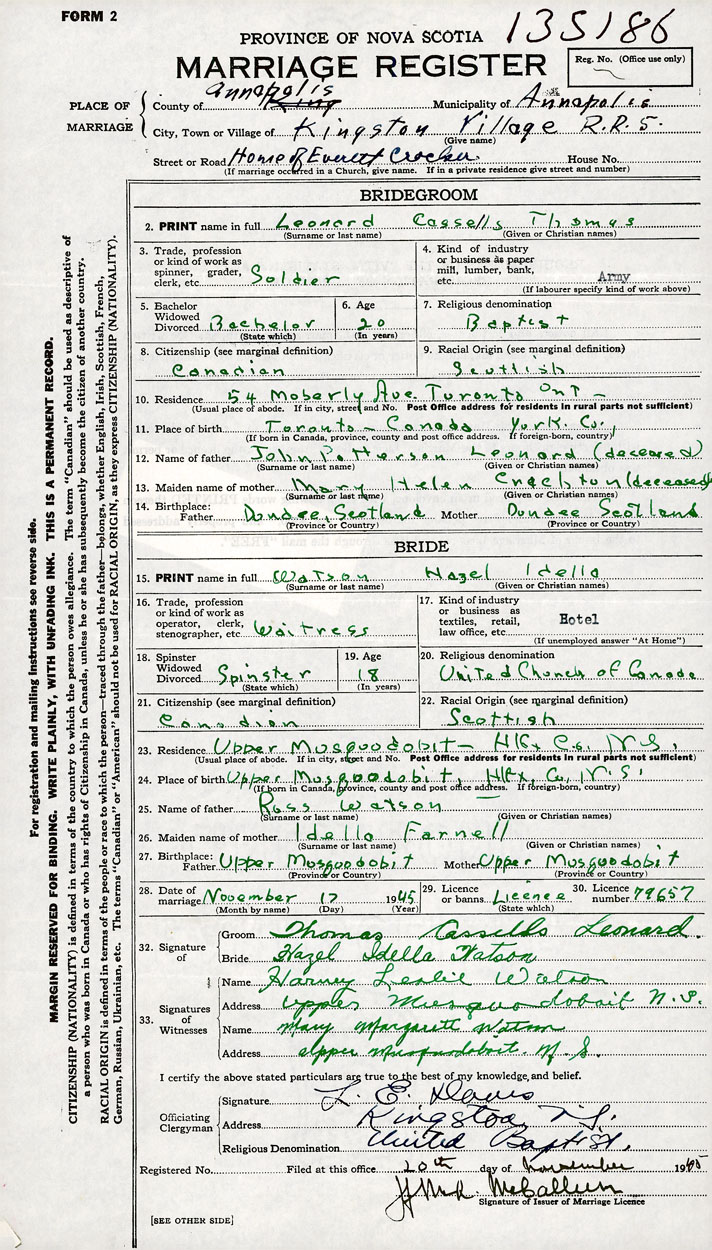 FORM 2
135186
PROVINCE OF NOVA SCOTIA
MARRIAGE REGISTER
Reg. No. (Office use only)
PLACE OF MARRIAGE
County of Annapolis King Municipality of Annapolis
City, Town or Village of Kingston Village R.R.5.
(Give name)
Street or Road Home of Everett Crocker House No.
(If marriage occurred in a Church, give name. If in a private residence give street and number)
BRIDEGROOM
2. PRINT name in full Leonard Cassells Thomas
(Surname or last name) (Given or Christian names)
3. Trade, profession or kind of work as spinner, grader, clerk, etc. Soldier
4. Kind of industry or business as paper mill, lumber, bank, etc. Army
(If labourer specify kind of work above)
5. Bachelor Widowed Divorced Bachelor
(State which)
6. Age 20
(In years)
7. Religious denomination
Baptist
8. Citizenship (see marginal definition)
Canadian
9. Racial Origin (see marginal definition)
Scottish
10. Residence 54 Moberly Ave. Toronto Ont –
(Usual place of abode. If in city, street and No. Post Office address for residents in rural parts not sufficient)
11. Place of birth Toronto – Canada York. Co.,
(If born in Canada, province, county and post office address. If foreign-born, country)
12. Name of father John Patterson Leonard (deceased)
(Surname or last name) (Given or Christian names)
13. Maiden name of mother Mary Helen (deceased)
(Surname or last name) (Given or Christian names)
14. Birthplace: Father Dundee, Scotland Mother Dundee Scotland
(Province or Country) (Province or Country)
BRIDE
15. PRINT name in full Watson Hazel Idella
(Surname or last name) (Given or Christian names)
16. Trade, profession or kind of work as operator, clerk, stenographer, etc. Waitress
17. Kind of industry or business as textiles, retail, law office, etc. Hotel
(If unemployed answer "At Home")
18. Spinster Widowed Divorced Spinster
(State which)
19. Age 18
(In years)
20. Religious denomination
United Church of Canada
21. Citizenship (see marginal definition)
Canadian
22. Racial Origin (see marginal definition)
Scottish
23. Residence Upper Musquodobit – Hlfx Co., N.S.
(Usual place of abode. If in city, street and No. Post Office address for residents in rural parts not sufficient)
24. Place of birth Upper Musquodobit, Hlfx, Co., N.S.
(If born in Canada, province, county and post office address. If foreign-born, country)
25. Name of father Ross Watson
(Surname or last name) (Given or Christian names)
26. Maiden name of mother Idella Farnell
(Surname or last name) (Given or Christian names)
27. Birthplace: Father Upper Musquodobit Mother Upper Musquodobit
(Province or Country) (Province or Country)
28. Date of marriage November 17 1945
(Month by name) (Day) (Year)
29. Licence or banns Licence
(State which)
30. Licence number 79657
32. Signature of
Groom Thomas Cassells Leonard.
Bride Hazel Idella Watson
33. Signatures of Witnesses
Name Harvey Leslie Watson
Address Upper Musquodobait N.S.
Name Mary Margarett Watson
Address Upper Musquodobit. N.S.
I certify the above stated particulars are true to the best of my knowledge, and belief.
Officiating Clergyman
Signature L. E. Davis
Address Kingston, N.S.
Religious Denomination United Baptist.
Registered No. Filed at this office 20th day of November 1945
McCallum
Signature of Issuer of Marriage Licence
[SEE OTHER SIDE]
For registration and mailing instructions see reverse side.
MARGIN RESERVED FOR BINDING. WRITE PLAINLY, WITH UNFADING INK. THIS IS A PERMANENT RECORD.
CITIZENSHIP (NATIONALITY) is defined in terms of the country to which the person owes allegiance. The term "Canadian" should be used as descriptive of
a person who was born in Canada or who has rights of Citizenship in Canada, unless he or she has subsequently become the citizen of another country.
RACIAL ORIGIN is defined in terms of the people or race to which the person—traced through the father—belongs, whether English, Irish, Scottish, French,
German, Russian, Ukrainian, etc. The terms "Canadian" or "American" should not be used for RACIAL ORIGIN, as they express CITIZENSHIP (NATIONALITY).